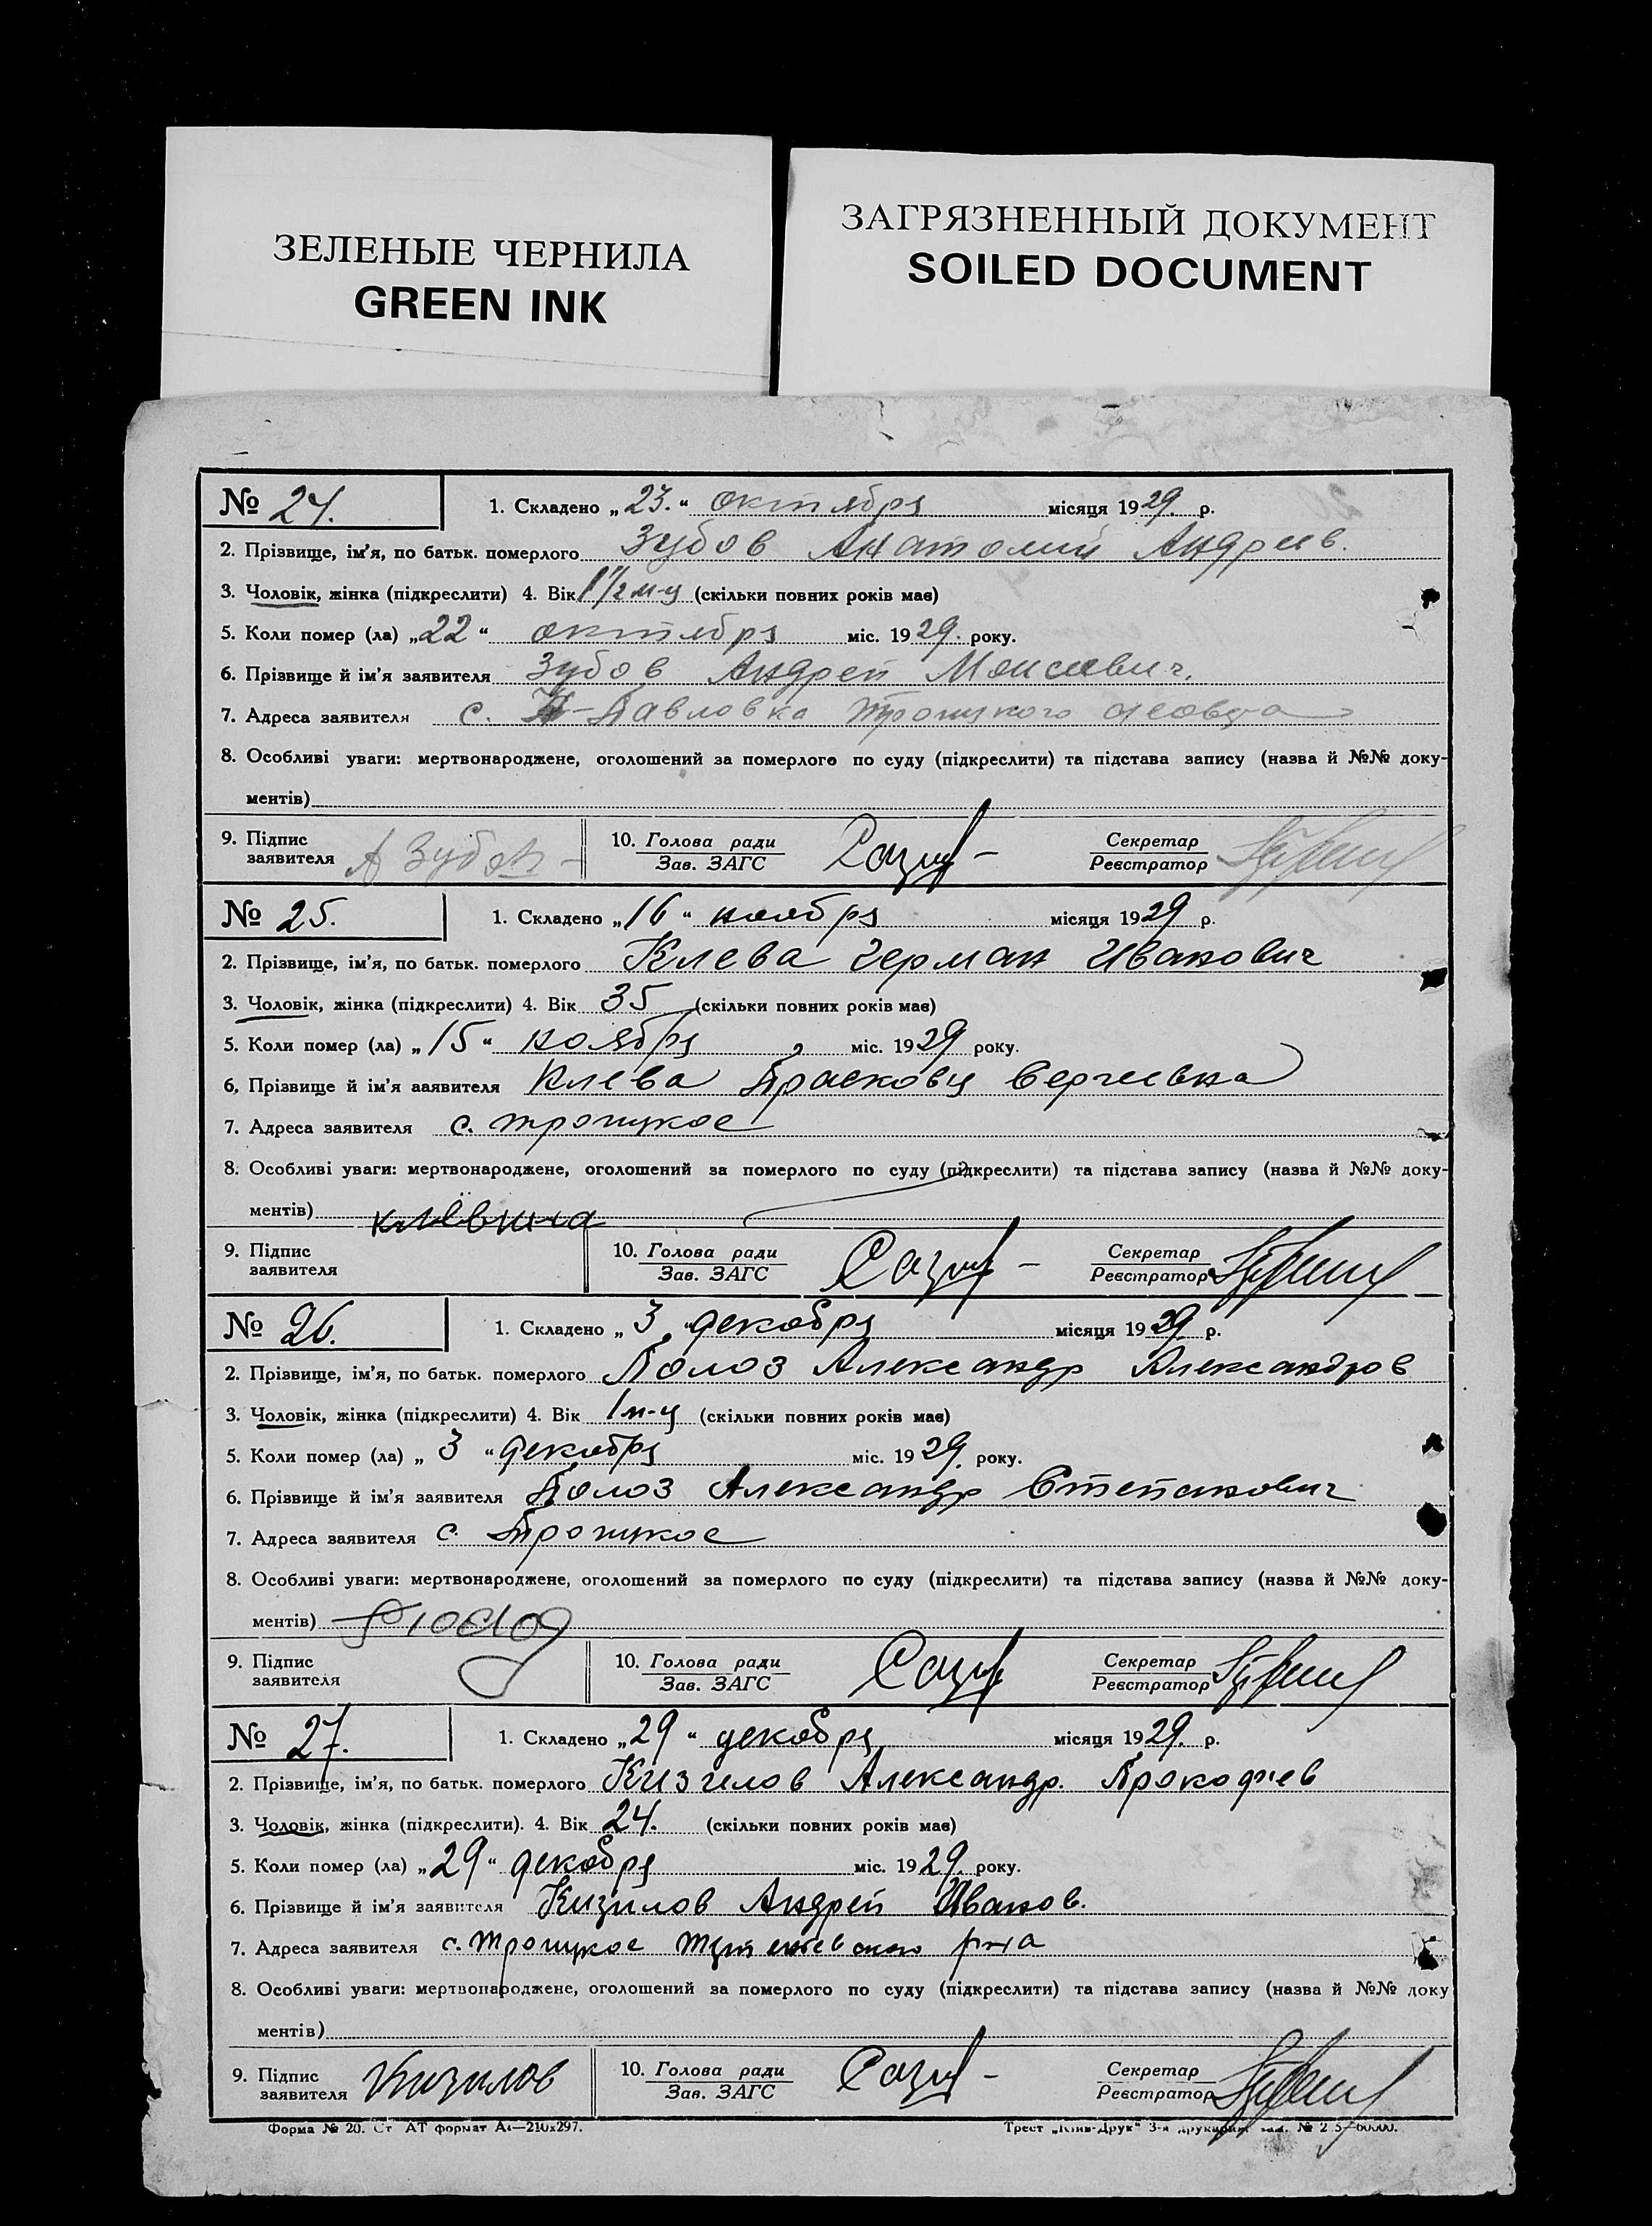 ЗЕЛЕНЫЕ ЧЕРНИЛА
GREEN INK
ЗАГРЯЗНЕННЫЙ ДОКУМЕНТ
SOILED DOCUMENT
№ 24. 1. Складено „23.“ октября місяця 1929. р.
2. Прізвище, ім'я, по батьк. померлого Зубов Анатолий Андреев.
3. Чоловік, жінка (підкреслити) 4. Вік 1 1/2 м-ц (скільки повних років має)
5. Коли помер (ла) „22“ октября міс. 1929. року.
6. Прізвище й ім'я заявителя Зубов Андрей Моисеевич.
7. Адреса заявителя с. Н-Павловка Троицкого
8. Особливі уваги: мертвонароджене, оголошений за померлого по суду (підкреслити) та підстава запису (назва й №№ доку-
ментів)
9. Підпис заявителя А Зубов 10. Голова ради Зав. ЗАГС Секретар Реєстратор
№ 25. 1. Складено „16“ ноября місяця 1929 р.
2. Прізвище, ім'я, по батьк. померлого Клева Герман Иванович
3. Чоловік, жінка (підкреслити) 4. Вік 35 (скільки повних років має)
5. Коли помер (ла) „15“ ноября міс. 1929 року.
6. Прізвище й ім'я заявителя Клева Прасковя Сергеевна
7. Адреса заявителя с. Троицкое
8. Особливі уваги: мертвонароджене, оголошений за померлого по суду (підкреслити) та підстава запису (назва й №№ доку-
ментів)
9. Підпис заявителя 10. Голова ради Зав. ЗАГС Секретар Реєстратор
№ 26. 1. Складено „3“ декабря місяця 1929. р.
2. Прізвище, ім'я, по батьк. померлого Полоз Александр Александров
3. Чоловік, жінка (підкреслити) 4. Вік 1 м-ц (скільки повних років має)
5. Коли помер (ла) „3“ декабря міс. 1929. року.
6. Прізвище й ім'я заявителя Полоз Александр Степанович
7. Адреса заявителя с. Троицкое
8. Особливі уваги: мертвонароджене, оголошений за померлого по суду (підкреслити) та підстава запису (назва й №№ доку-
ментів)
9. Підпис заявителя 10. Голова ради Зав. ЗАГС Секретар Реєстратор
№ 27. 1. Складено „29“ декабря місяця 1929. р.
2. Прізвище, ім'я, по батьк. померлого Кизилов Александр. Прокофиев
3. Чоловік, жінка (підкреслити). 4. Вік 24. (скільки повних років має)
5. Коли помер (ла) „29“ декабря міс. 1929. року.
6. Прізвище й ім'я заявителя Кизилов Андрей Иванов.
7. Адреса заявителя с. Троицкое р-на
8. Особливі уваги: мертвонароджене, оголошений за померлого по суду (підкреслити) та підстава запису (назва й №№ доку
ментів)
9. Підпис заявителя Кизилов 10. Голова ради Зав. ЗАГС Секретар Реєстратор
Форма № 20. Ст АТ формат А4—210х297. Трест „Київ-Друк“ 3-я